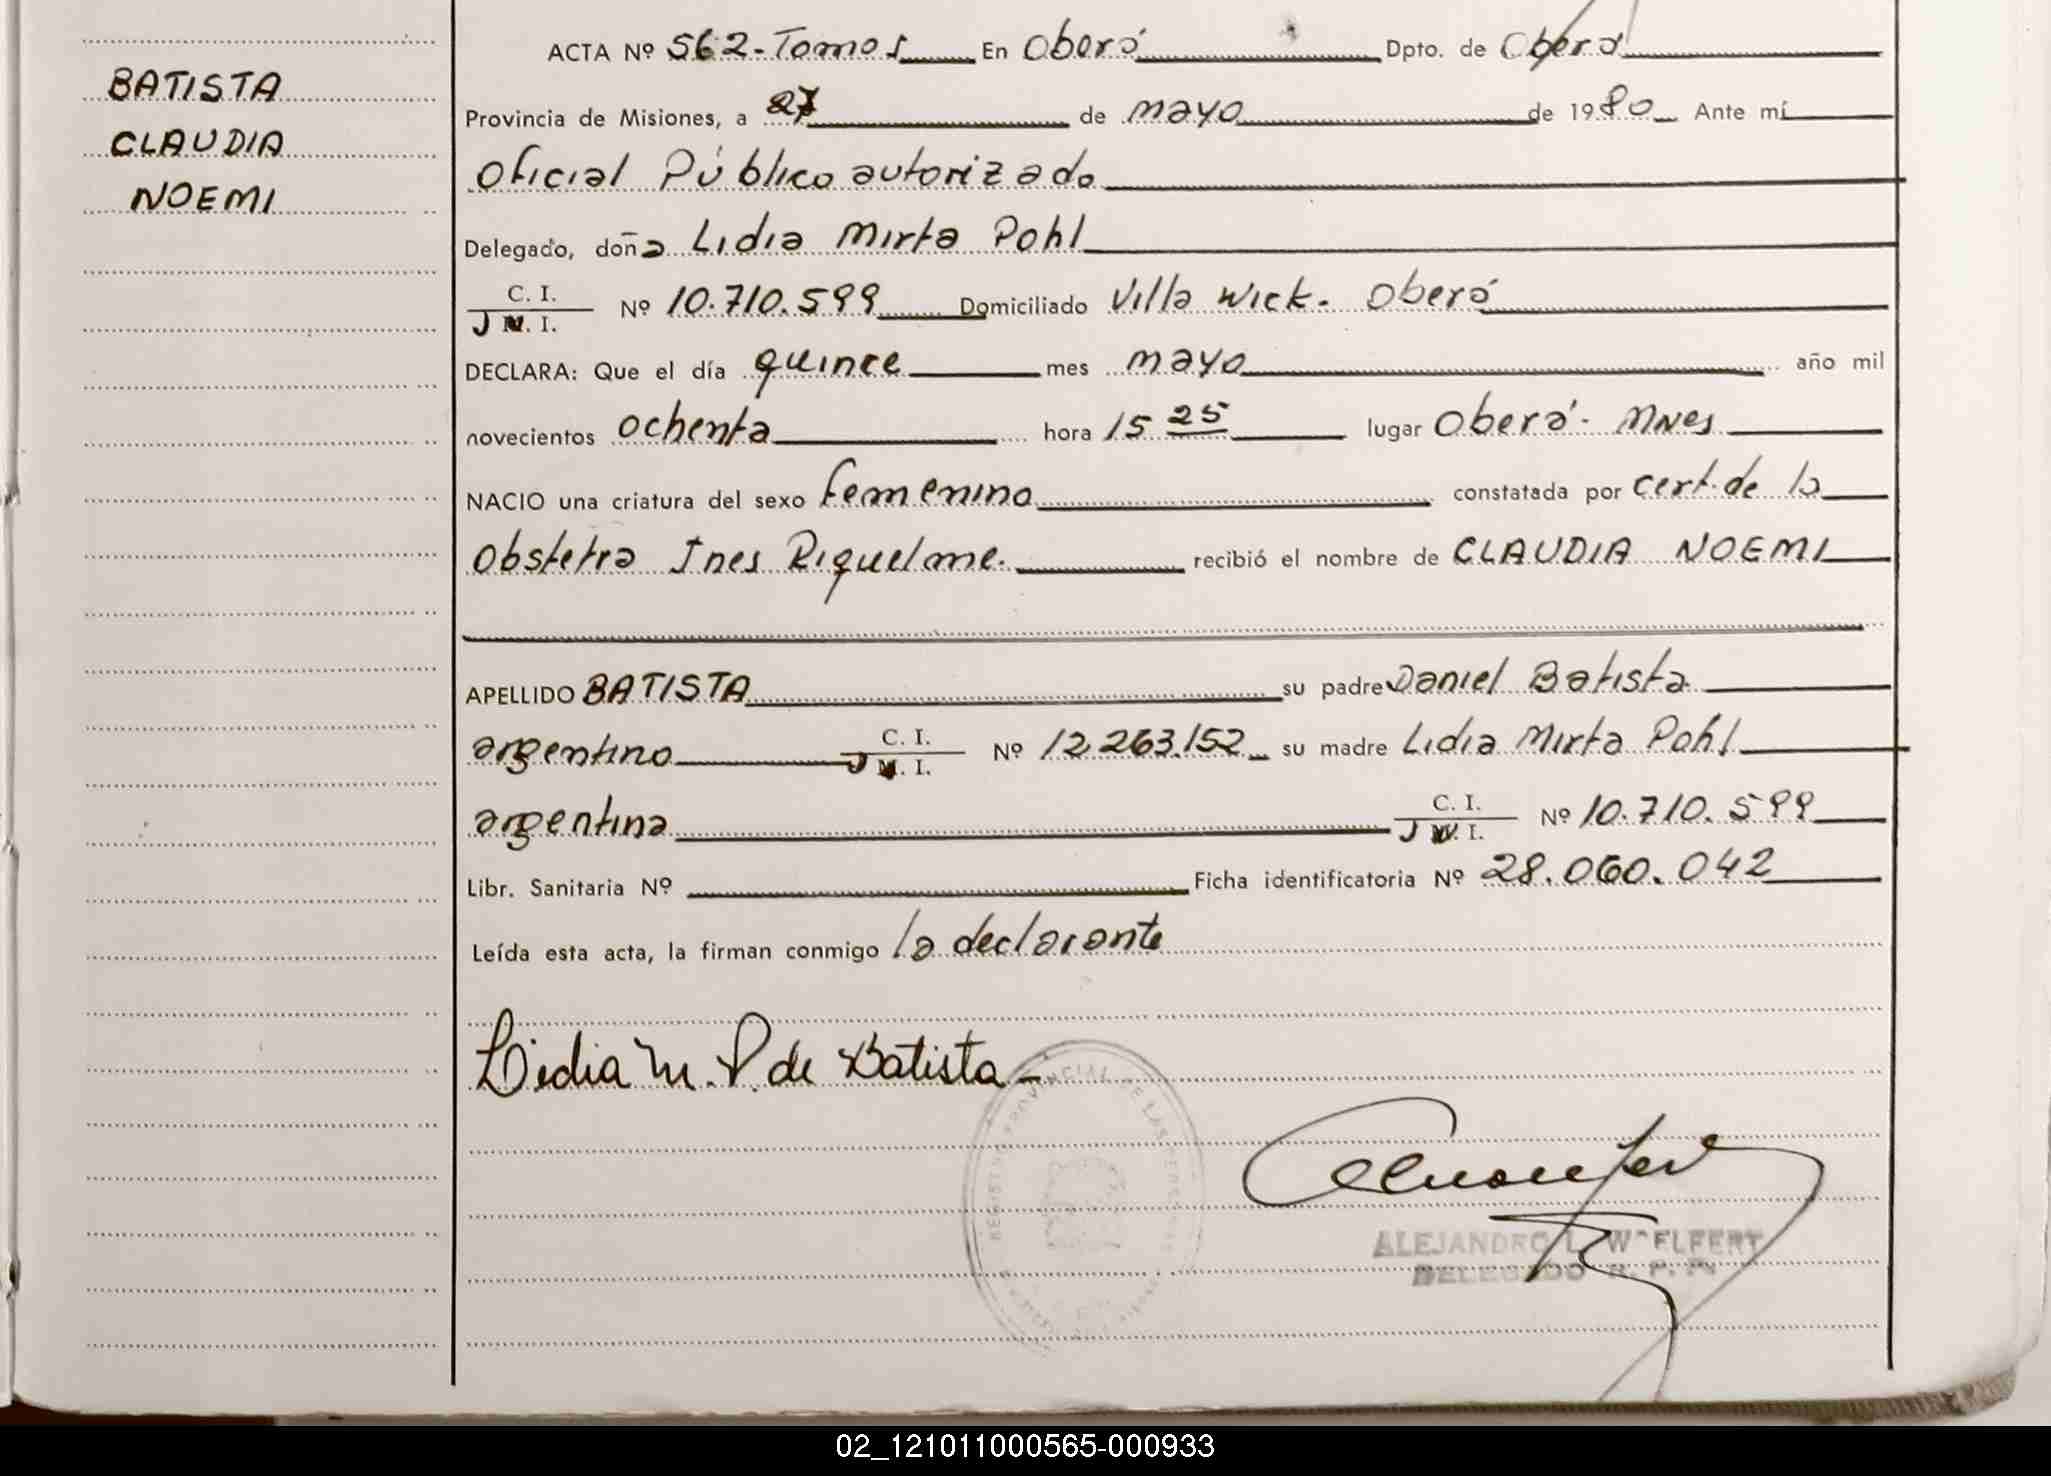 BATISTA
CLAUDIA
NOEMI
ACTA Nº 562-Tomo I En Oberá Dpto. de Oberá
Provincia de Misiones, a 27 de mayo de 1980 Ante mí
Oficial Público autorizado
Delegado, doña Lidia Mirta Pohl
C. I.
Nº 10.710.599 Domiciliado Villa Wick. Oberá
DECLARA: Que el día quince mes mayo año mil
novecientos ochenta hora 15 25 lugar Oberá- Mnes
NACIO una criatura del sexo femenino constatada por cert. de la
Obstetra Ines Riquelme. recibió el nombre de CLAUDIA NOEMI
APELLIDO BATISTA su padre Daniel Batista
argentino C. I. Nº 12.263.152 su madre Lidia Mirta Pohl
argentina C. I. Nº 10.710.599
Libr. Sanitaria Nº Ficha identificatoria Nº 28.060.042
Leída esta acta, la firman conmigo la declarante
Lidia M. P. de Batista-
REGISTRO PROVINCIAL DE LAS PERSONAS
ALEJANDRO L. WELFERT
DELEGADO R. P. P.
02_121011000565-000933